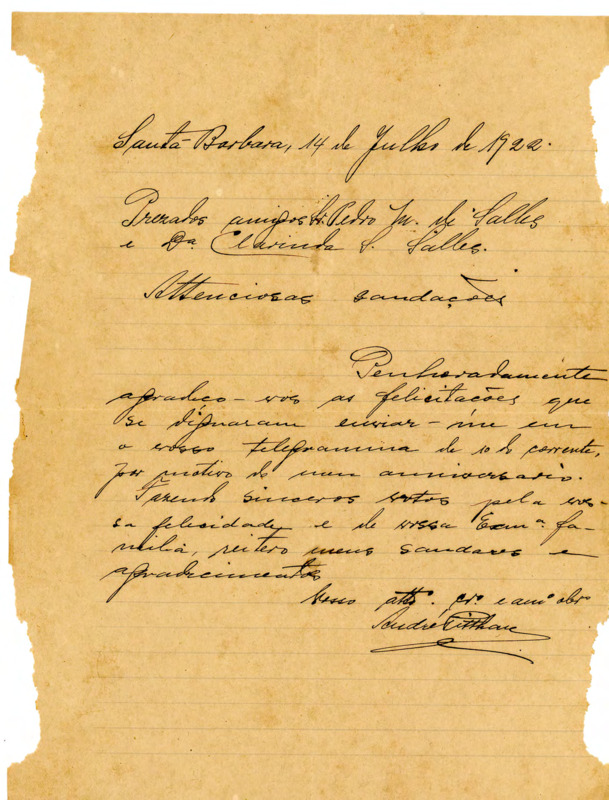 Santa Barbara, 14 de Julho de 1922.
Prezados amigos Sr. Pedro M. de Salles
e Da. Clarinda S. Salles.
Attenciosas saudações
Penhoradamente
agradeço-vos as felicitações que
se dignaram enviar-me em
o vosso telegramma de 10 do corrente,
por motivo de meu anniversario.
Fazendo sinceros votos pela vos-
sa felicidade e de vossa Exma. fa-
milia, reitero meus saudares e
agradecimentos
Vosso atto. cro. e amo. obro
André Pitthan